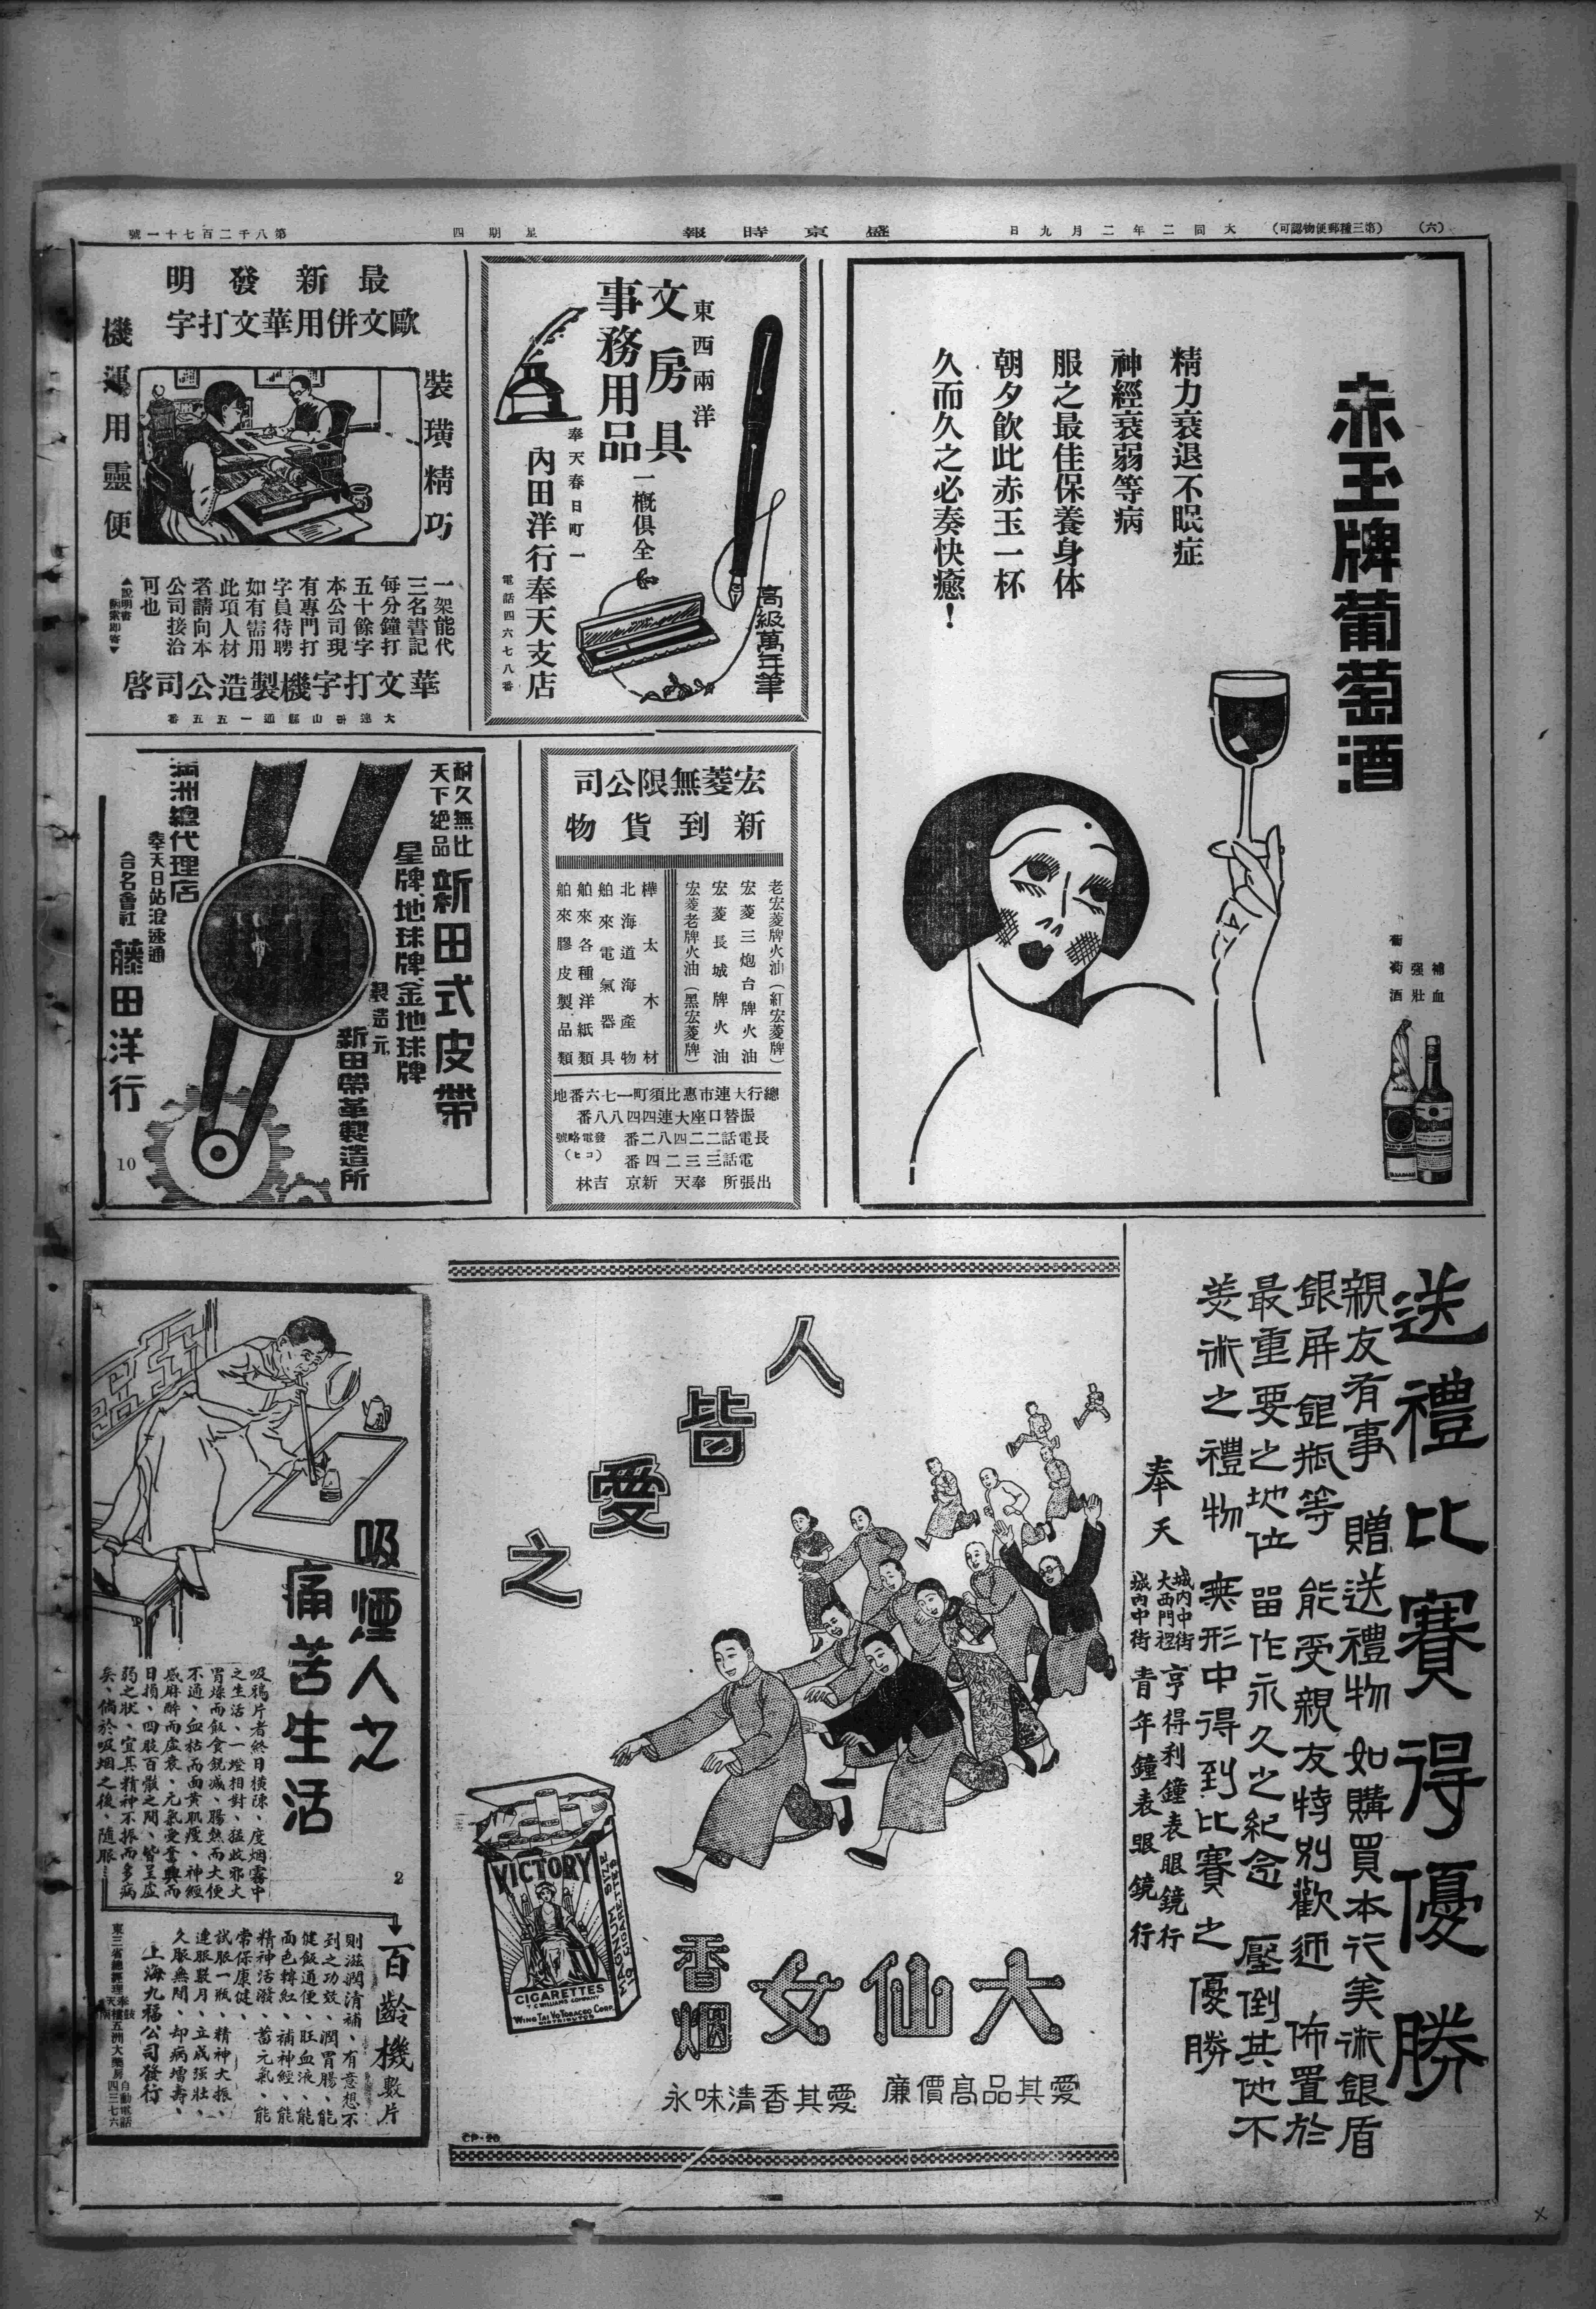 (六)
(第三種郵便物認可)
大同二年二月九日
盛京時報
星期四
第八千二百七十一號
赤玉牌葡萄酒
精力衰退不眠症
神經衰弱等病
服之最佳保養身体
朝夕飲此赤玉一杯
久而久之必奏快癒！
補血
强壯
葡萄酒
東西兩洋
文房具
事務用品
一概俱全
高級萬年筆
奉天春日町一
內田洋行奉天支店
電話四六七八番
最新發明
歐文併用華文打字
機運用靈便
裝璜精巧
一架能代
三名書記
每分鐘打
五十餘字
本公司現
有專門打
字員待聘
如有需用
此項人材
者請向本
公司接洽
可也
▲說明書
函索即寄▼
華文打字機製造公司啓
大連市山縣通一五五番
宏菱無限公司
新到貨物
老宏菱牌火油（紅宏菱牌）
宏菱三炮台牌火油
宏菱長城牌火油
宏菱老牌火油（黑宏菱牌）
樺太木材
北海道海產物
舶來電氣器具
舶來各種洋紙類
舶來膠皮製品類
總行大連市惠比須町一七六番地
振替口座大連四四八八番
長電話二二四八二番
發電略號
（コヒ）
電話三三二四番
出張所 奉天 新京 吉林
耐久無比
天下絕品
新田式皮帶
星牌、地球牌、金地球牌
製造元
新田帶革製造所
滿洲總代理店
奉天日站浪速通
合名會社
藤田洋行
10
送禮比賽得優勝
親友有事 贈送禮物 如購買本行美術銀盾
銀屏銀瓶等 能受親友特別歡迎 佈置於
最重要之地位 留作永久之紀念 壓倒其他不
美術之禮物 無形中得到比賽之優勝
奉天
城內中街
大西門裡
亨得利鐘表眼鏡行
城內中街
青年鐘表眼鏡行
人皆愛之
VICTORY
CIGARETTES
T. C. WILLIAMS COMPANY
WING TAI VO TOBACCO CORP.
DISTRIBUTORS
MAGNUM SIZE
CIGARETTES
大仙女
香烟
愛其品高價廉
愛其香清味永
CP-20
吸煙人之
痛苦生活
吸鴉片者終日橫陳、度烟霧中
之生活、一燈相對、猛收邪火
胃燥而飯食銳減、腸熱而大便
不通、血枯而面黃肌瘦、神經
感麻醉而虛衰、元氣受奮興而
日損、四肢百骸之間、皆呈虛
弱之狀、宜其精神不振而多病
矣、倘於吸烟之後、隨服
2
百齡機數片
則滋潤清補、有意想不
到之功效、潤胃腸、能
健飯通便、旺血液、能
面色轉紅、補神經、能
精神活潑、蓄元氣、能
常保康健、
試服一瓶、精神大振、
連服數月、立成强壯、
久服無間、却病增壽、
上海九福公司發行
東三省總經理 奉天鼓樓南五洲大藥房 自動電話四三七六